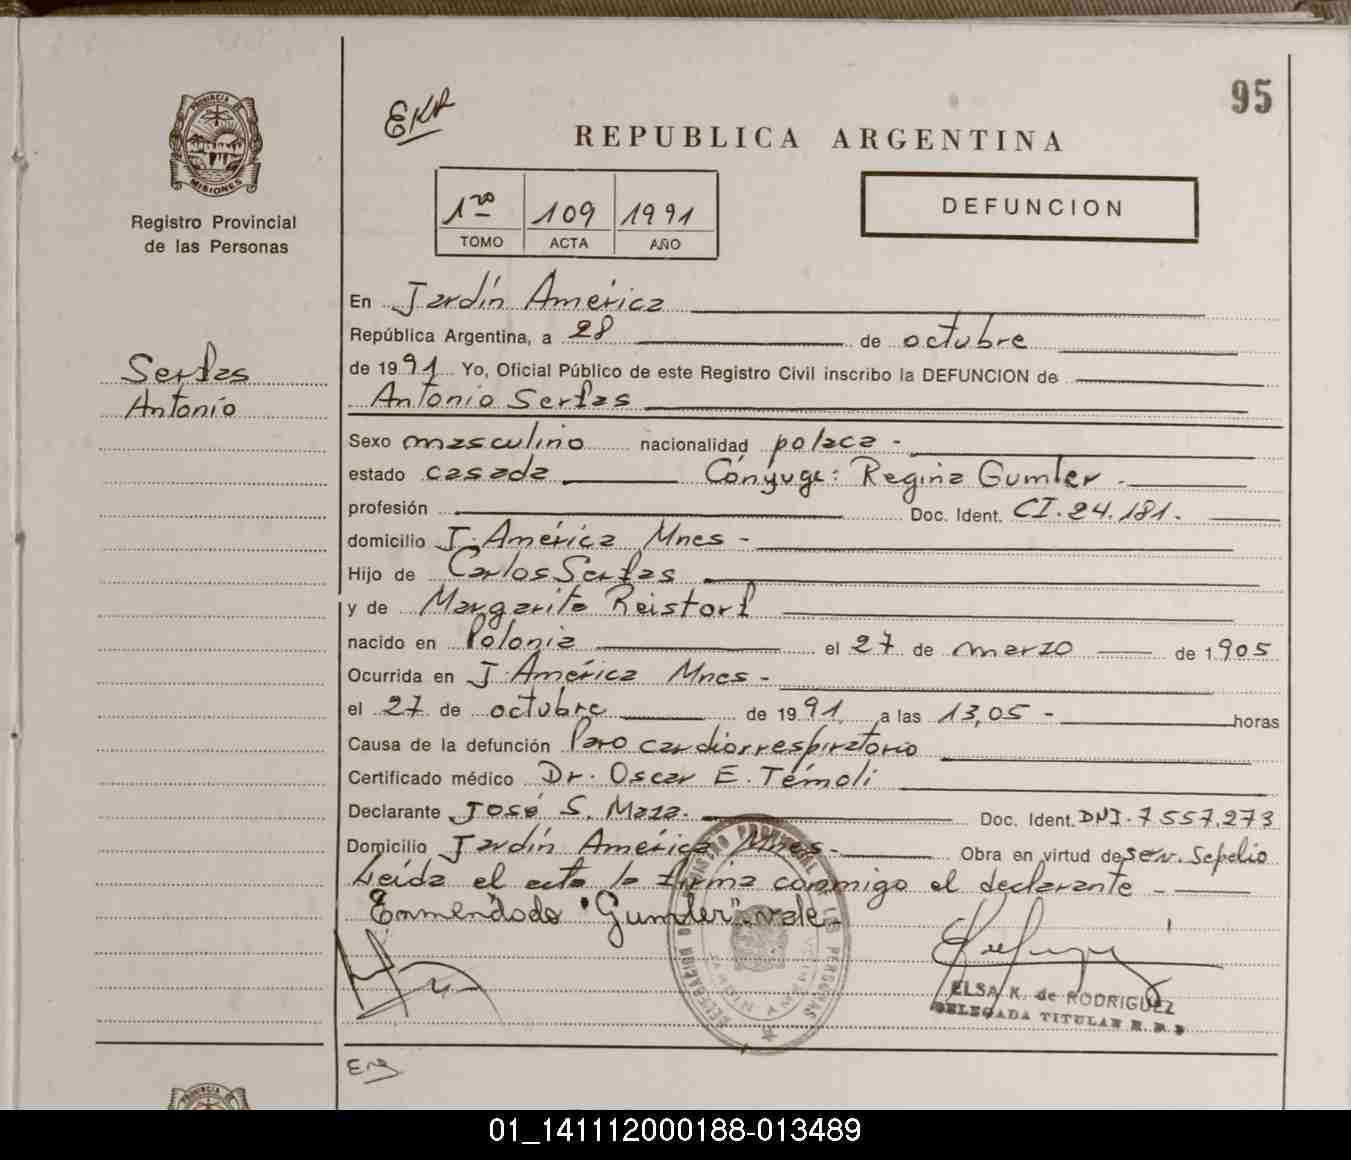 95
EKR
REPUBLICA ARGENTINA
PROVINCIA DE
MISIONES
Registro Provincial
de las Personas
1ro 109 1991
TOMO ACTA AÑO
DEFUNCION
Serfas
Antonio
En Jardín América
República Argentina, a 28 de octubre
de 1991 Yo, Oficial Público de este Registro Civil inscribo la DEFUNCION de
Antonio Serfas
Sexo masculino nacionalidad polaca -
estado casada Cónyuge: Regina Gumler -
profesión Doc. Ident. CI. 24.181.
domicilio J. América Mnes -
Hijo de Carlos Serfas
y de Margarita Reistorf
nacido en Polonia el 27 de marzo de 1905
Ocurrida en J. América Mnes -
el 27 de octubre de 1991 a las 13,05 - horas
Causa de la defunción Paro cardiorrespiratorio
Certificado médico Dr. Oscar E. Témoli
Declarante José S. Maza. Doc. Ident. DNI. 7557.273
Domicilio Jardín América Mnes - Obra en virtud de serv. Sepelio
Leída el acta la firma conmigo el declarante -
Enmendado "Gumler" vale -
ELSA K. de RODRIGUEZ
DELEGADA TITULAR R.P.P
PROVINCIA DE
01_141112000188-013489